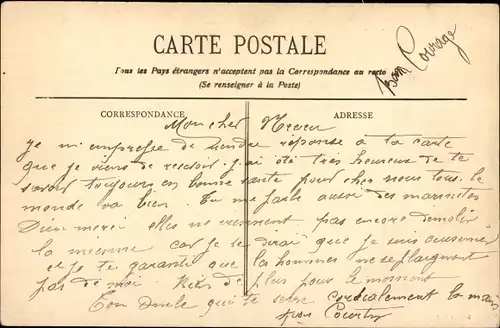 Bon Courage
CARTE POSTALE
Tous les Pays étrangers n'acceptent pas la Correspondance au recto
(Se renseigner à la Poste)
CORRESPONDANCE
ADRESSE
Mon cher Neveu
je m'empresse de rendre réponse à ta carte
que je viens de recevoir j'ai été très heureux de te
savoir toujours en bonne santé pour chez nous tous le
monde va bien. Tu me parle aussi des marmites
Dieu merci elles ne viennent pas encore démolir
la mienne car je te dirai que je suis cuisinier
et je te garantie que les hommes ne se plaignent
pas de moi Rien de plus pour le moment
Ton Oncle qui te serre cordialement la main